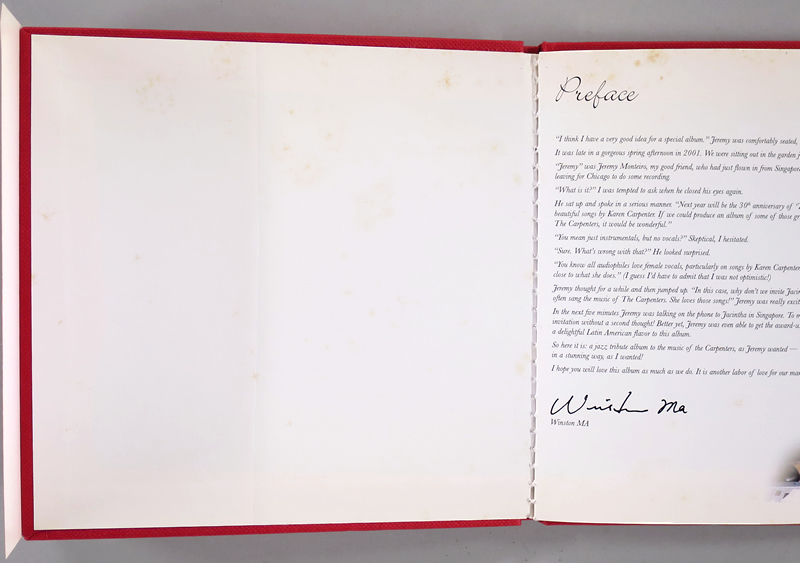 Preface
"I think I have a very good idea for a special album." Jeremy was comfortably seated,
It was late in a gorgeous spring afternoon in 2001. We were sitting out in the garden
"Jeremy" was Jeremy Monteiro, my good friend, who had just flown in from Singapore
leaving for Chicago to do some recording.
"What is it?" I was tempted to ask when he closed his eyes again.
He sat up and spoke in a serious manner. "Next year will be the 30th anniversary of
beautiful songs by Karen Carpenter. If we could produce an album of some of those
The Carpenters, it would be wonderful."
"You mean just instrumentals, but no vocals?" Skeptical, I hesitated.
"Sure. What's wrong with that?" He looked surprised.
"You know all audiophiles love female vocals, particularly on songs by Karen Carpenter
close to what she does." (I guess I'd have to admit that I was not optimistic!)
Jeremy thought for a while and then jumped up. "In this case, why don't we invite
often sang the music of The Carpenters. She loves those songs!" Jeremy was really
In the next five minutes Jeremy was talking on the phone to Jacintha in Singapore. To
invitation without a second thought! Better yet, Jeremy was even able to get the
a delightful Latin American flavor to this album.
So here it is: a jazz tribute album to the music of the Carpenters, as Jeremy wanted —
in a stunning way, as I wanted!
I hope you will love this album as much as we do. It is another labor of love for our
Winston Ma
Winston MA